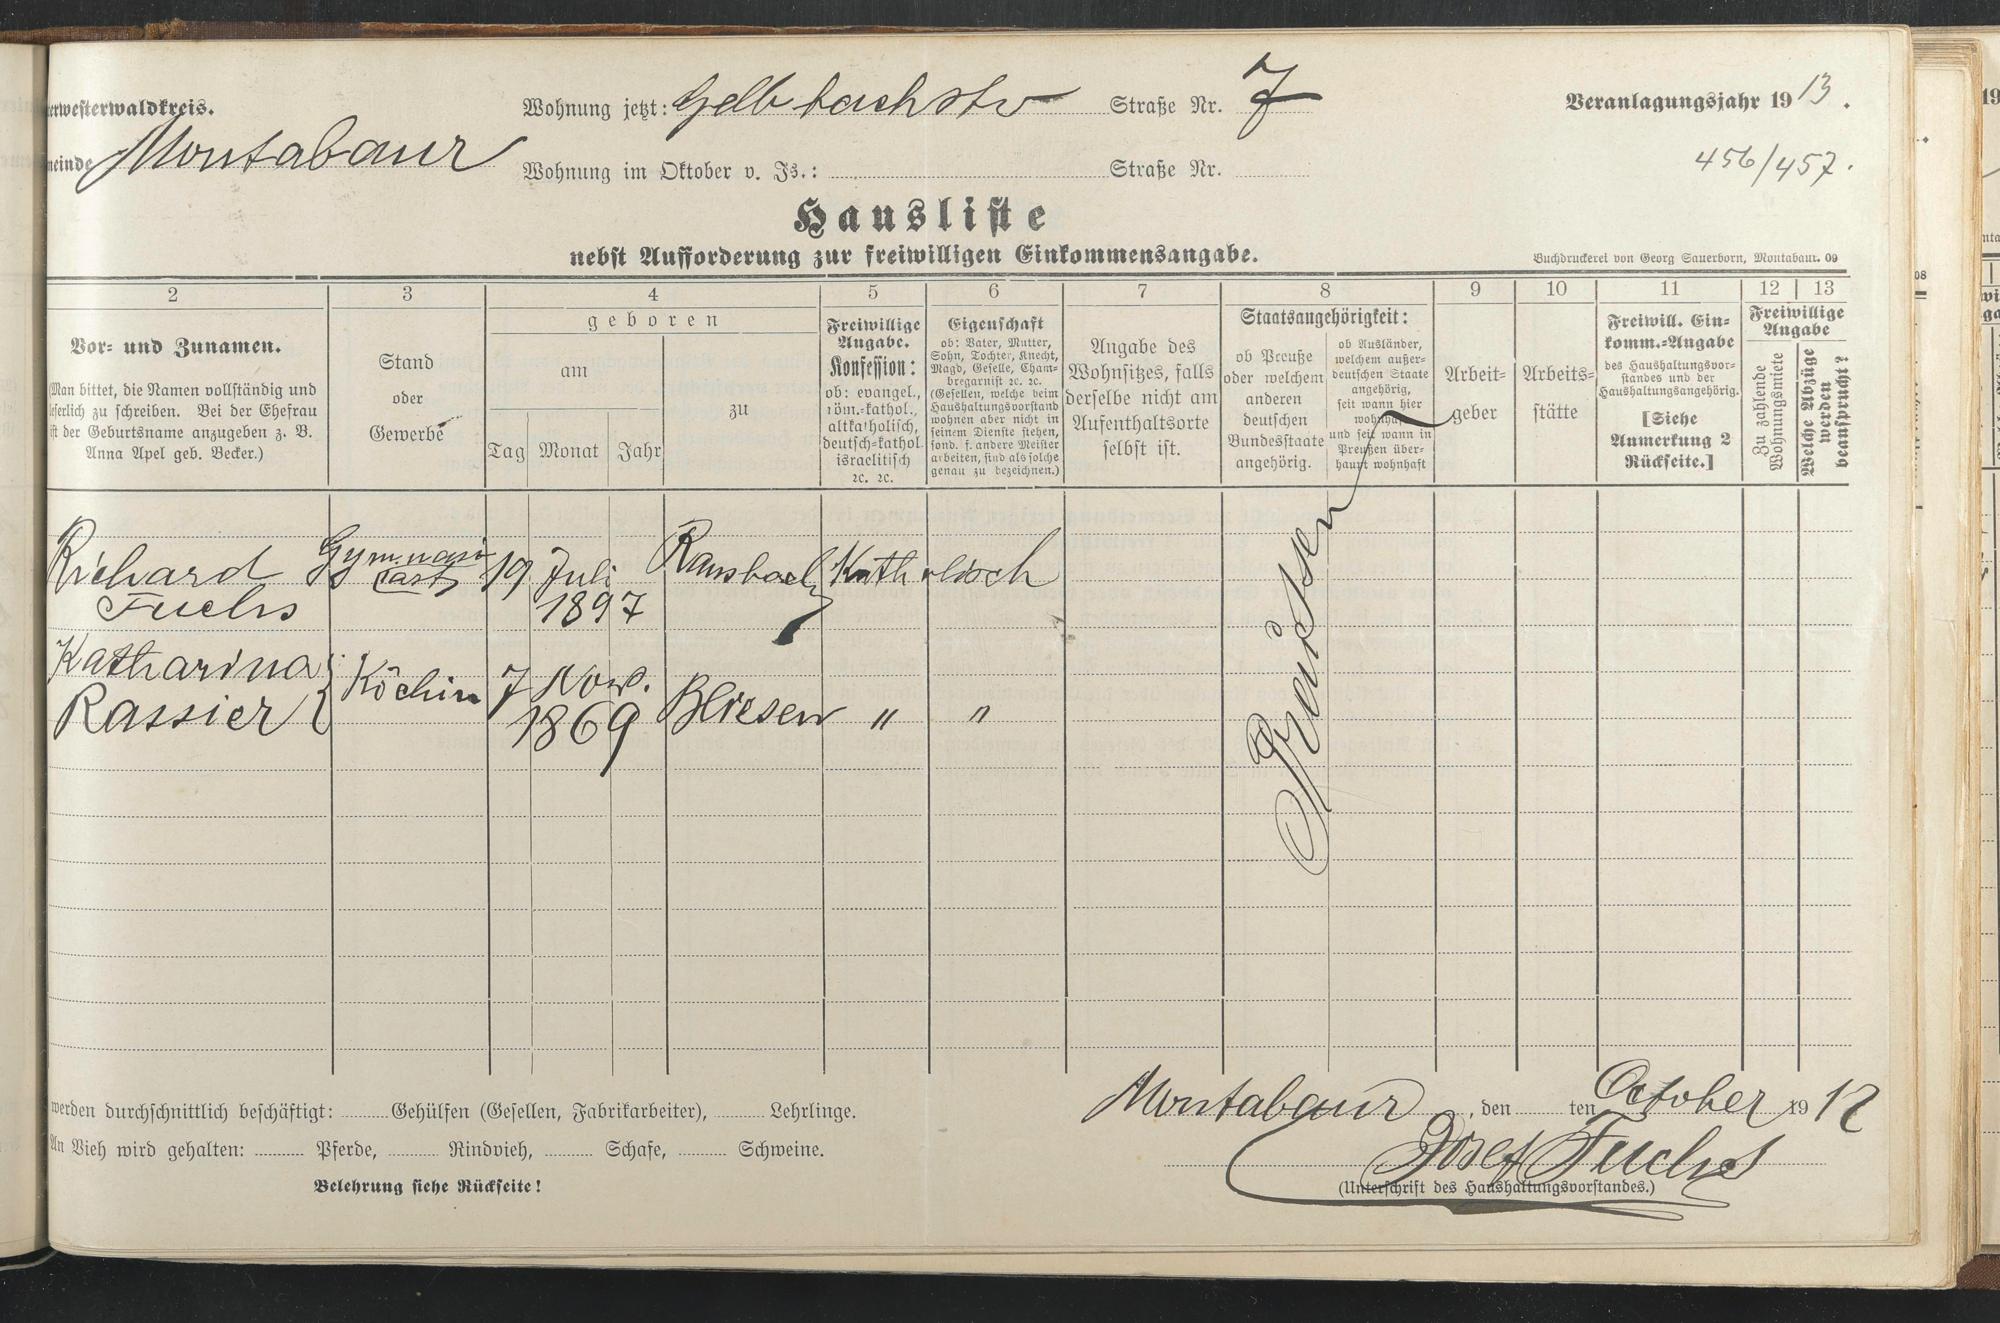 erwesterwaldkreis.
Wohnung jetzt: Gelbbachstr Straße Nr. 7
Veranlagungsjahr 1913.
meinde Montabaur
Wohnung im Oktober v. Js.: Straße Nr.
456/457.
Hausliste
nebst Aufforderung zur freiwilligen Einkommensangabe.
Buchdruckerei von Georg Sauerborn, Montabaur. 09
2 3 4 5 6 7 8 9 10 11 12 13
Vor- und Zunamen.
(Man bittet, die Namen vollständig und
leserlich zu schreiben. Bei der Ehefrau
ist der Geburtsname anzugeben z. B.
Anna Apel geb. Becker.)
Stand
oder
Gewerbe
geboren
am
zu
Tag Monat Jahr
Freiwillige
Angabe.
Konfession:
ob: evangel.,
röm.-kathol.,
altkatholisch,
deutsch-kathol.
israelitisch
ꝛc. ꝛc.
Eigenschaft
ob: Vater, Mutter,
Sohn, Tochter, Knecht,
Magd, Geselle, Cham-
bregarnist ꝛc. ꝛc.
(Gesellen, welche beim
Haushaltungsvorstand
wohnen aber nicht in
seinem Dienste stehen,
sond. f. andere Meister
arbeiten, sind als solche
genau zu bezeichnen.)
Angabe des
Wohnsitzes, falls
derselbe nicht am
Aufenthaltsorte
selbst ist.
Staatsangehörigkeit:
ob Preuße
oder welchem
anderen
deutschen
Bundesstaate
angehörig.
ob Ausländer,
welchem außer-
deutschen Staate
angehörig,
seit wann hier
wohnhaft
und seit wann in
Preußen über-
haupt wohnhaft
Arbeit-
geber
Arbeits-
stätte
Freiwill. Ein-
komm.-Angabe
des Haushaltungsvor-
standes und der
Haushaltungsangehörig.
[Siehe
Anmerkung 2
Rückseite.]
Freiwillige
Angabe
Zu zahlende
Wohnungsmiete
Welche Abzüge
werden
beansprucht?
Richard Gymnasi 19 Juli Ransbach Katholisch
Fuchs 1897
Katharina
Rassier Köchin 7 Nov. Bliesen " "
1869
Preussen
werden durchschnittlich beschäftigt: Gehülfen (Gesellen, Fabrikarbeiter), Lehrlinge.
Montabaur, den ten October 1912
An Vieh wird gehalten: Pferde, Rindvieh, Schafe, Schweine.
Josef Fuchs
Belehrung siehe Rückseite!
(Unterschrift des Haushaltungsvorstandes.)